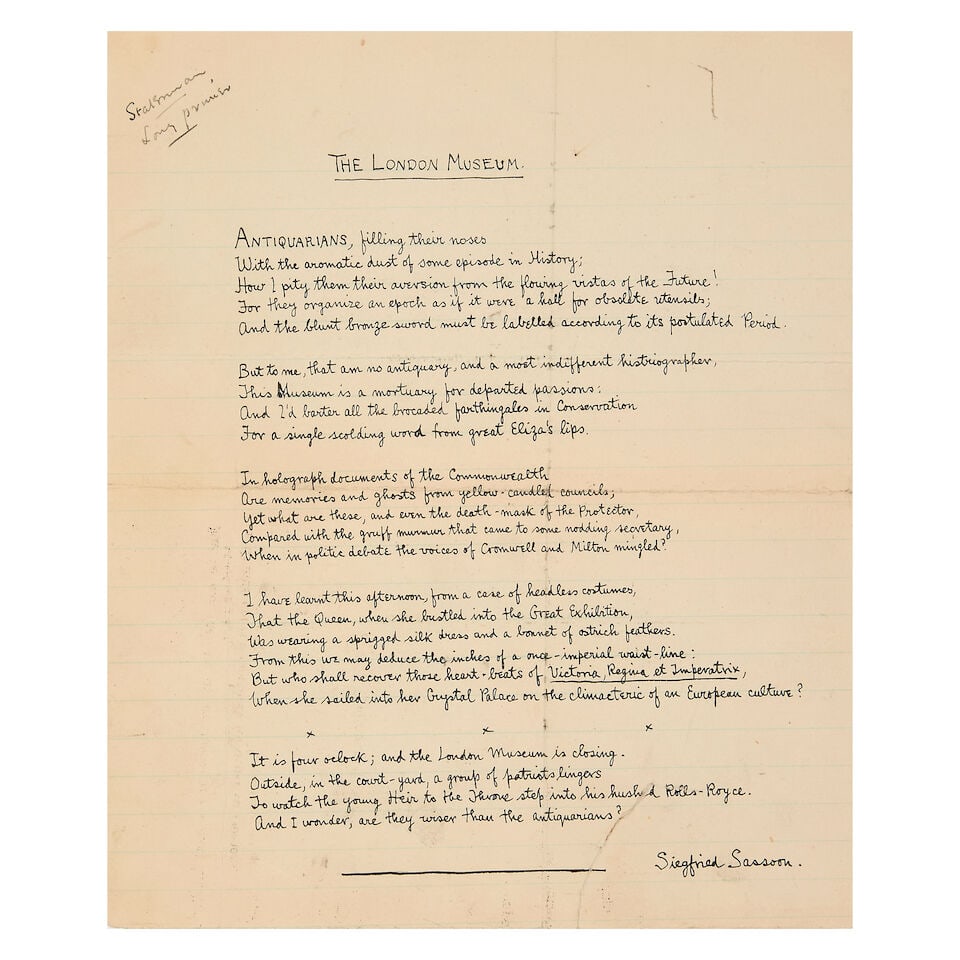 Statesman
Long primer
THE LONDON MUSEUM.
ANTIQUARIANS, filling their noses
With the aromatic dust of some episode in History;
How I pity them their aversion from the flowing vistas of the Future!
For they organize an epoch as if it were a hall for obsolete utensils;
And the blunt bronze sword must be labelled according to its postulated Period.
But to me, that am no antiquary, and a most indifferent histriographer,
This Museum is a mortuary for departed passions:
And I'd barter all the brocaded farthingales in Conservation
For a single scolding word from great Eliza's lips.
In holograph documents of the Commonwealth
Are memories and ghosts from yellow-candled councils;
Yet what are these, and even the death-mask of the Protector,
Compared with the gruff murmur that came to some nodding secretary,
When in politic debate the voices of Cromwell and Milton mingled?
I have learnt this afternoon, from a case of headless costumes,
That the Queen, when she bustled into the Great Exhibition,
Was wearing a sprigged silk dress and a bonnet of ostrich feathers.
From this we may deduce the inches of a once-imperial waist-line:
But who shall recover those heart-beats of Victoria, Regina et Imperatrix,
When she sailed into her Crystal Palace on the climacteric of an European culture?
x x x
It is four oclock; and the London Museum is closing.
Outside, in the court-yard, a group of patriots lingers
To watch the young Heir to the Throne step into his hush'd Rolls-Royce.
And I wonder, are they wiser than the antiquarians?
Siegfried Sassoon.